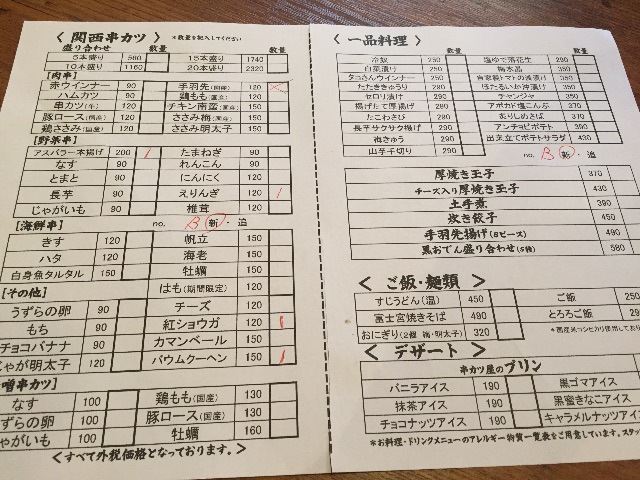 〈 関西串カツ 〉 ＊数量を記入してください
盛り合わせ 数量 数量
5本盛り 580 15本盛り 1740
10本盛り 1160 20本盛り 2320
[肉串] 数量
赤ウインナー 90 手羽先(国産) 120
ハムカツ 90 鶏もも(国産) 120
串カツ(牛) 120 チキン南蛮(国産) 150
豚ロース(国産) 120 ささみ梅(国産) 150
鶏ささみ(国産) 120 ささみ明太子 150
[野菜串]
アスパラ一本揚げ 200 たまねぎ 90
なす 90 れんこん 90
とまと 90 にんにく 120
長芋 90 えりんぎ 120
じゃがいも 90 椎茸 120
[海鮮串] no. B 新・追
きす 120 帆立 150
ハタ 120 海老 150
白身魚タルタル 150 牡蠣 150
[その他] はも(期間限定) 150
うずらの卵 90 チーズ 120
もち 90 紅ショウガ 120
チョコバナナ 90 カマンベール 150
じゃが明太子 120 バウムクーヘン 150
噌串カツ]
なす 100 鶏もも(国産) 130
ずらの卵 100 豚ロース(国産) 130
ゃがいも 100 牡蠣 160
＜すべて外税価格となっております。＞
〈 一品料理 〉
数量 数量
冷奴 250 塩ゆで落花生 290
白菜漬け 250 梅水晶 350
タコさんウインナー 250 自家製トマトの海鮮漬け 350
たたききゅうり 290 ほたるいか沖漬け 350
セロリ漬け 290 チャンジャ 350
揚げたて厚揚げ 290 アボカド塩こんぶ 370
たこわさび 290 おりしめさば 370
長芋サクサク揚げ 290 アンチョビポテト 390
梅きゅう 290 出来立てポテトサラダ 430
山芋千切り 290 no. B 新・追
厚焼き玉子 370
チーズ入り厚焼き玉子 430
土手煮 390
炊き餃子 450
手羽先揚げ(5ピース) 490
黒おでん盛り合わせ(5種) 580
〈 ご飯・麺類 〉
すじうどん(温) 450 ご飯 250
富士宮焼きそば 490 とろろご飯 290
おにぎり(2個 梅・明太子) 320 ＊国産米コシヒカリ使用しており
〈 デザート 〉
串カツ屋のプリン
バニラアイス 190 黒ゴマアイス
抹茶アイス 190 黒蜜きなこアイス
チョコナッツアイス 190 キャラメルナッツアイス
＊お料理・ドリンクメニューのアレルギー物質一覧表をご用意しています。スタッ